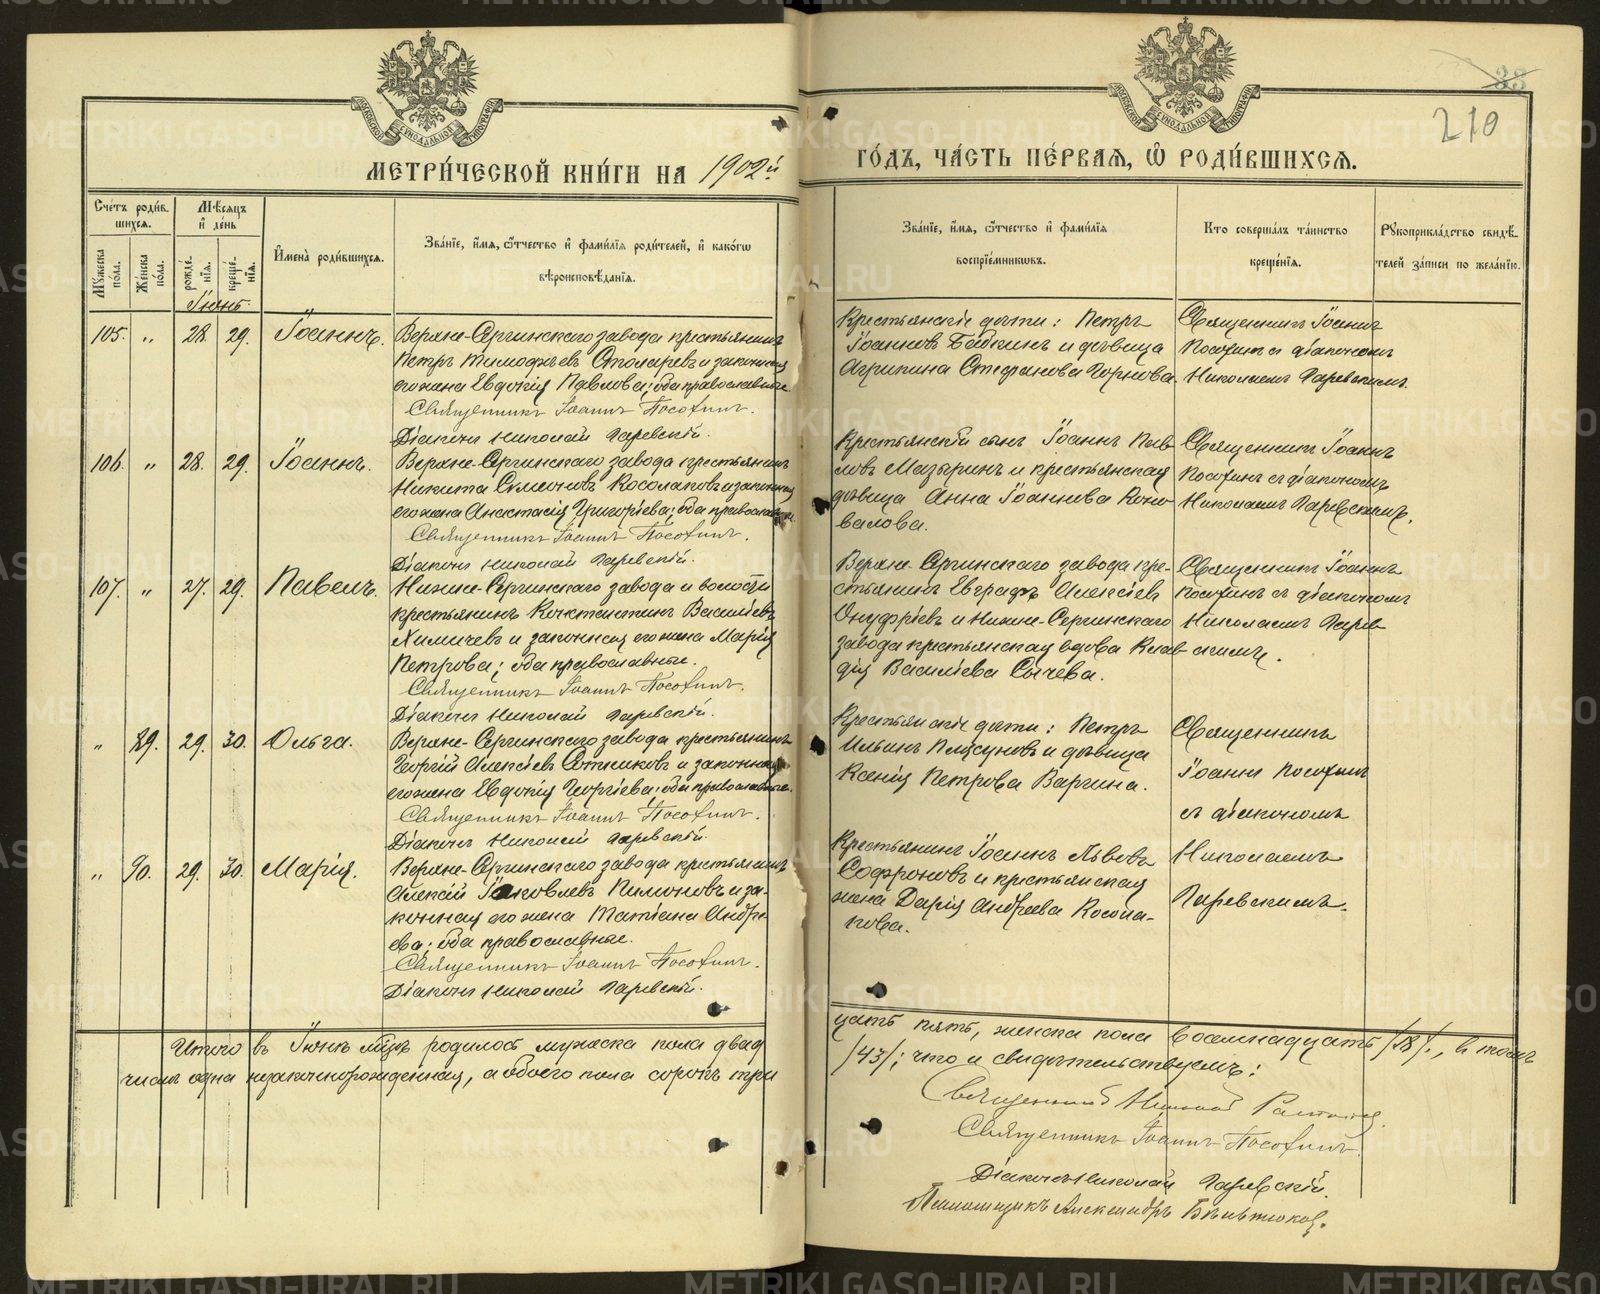 МЕТРИ́ЧЕСКОЙ КНИ́ГИ НА 1902й
ГО́ДЪ, ЧА́СТЬ ПЕ́РВАѦ, Ѡ РОДИ́ВШИХСѦ.
33
210
Сче́тъ роди́в-
шихсѧ.
Мѣ́сѧцъ
и де́нь
Мꙋ́жеска по́ла.
Же́нска по́ла.
рожде́нїѧ.
креще́нїѧ.
И҆мена̀ роди́вшихсѧ.
Зва́нїе, и҆́мѧ, ѻ҆́тчество и҆ фами́лїѧ роди́телей, и҆ како́гѡ
вѣроисповѣ́данїѧ.
Зва́нїе, и҆́мѧ, ѻ҆́тчество и҆ фами́лїѧ
воспрїе́мниковъ.
Кто̀ соверша́лъ та́инство
креще́нїѧ.
Рꙋкоприкла́дство свидѣ́-
телей за́писи по жела́нїю.
Іюнь.
105. „ 28. 29. Іоаннъ.
Верхне-Сергинскаго завода крестьянинъ
Петръ Тимофѣевъ Столаревъ и законная
его жена Евдокія Павлова; оба православные.
Священникъ Іоаннъ
Діаконъ Николай
Крестьянскіе дѣти: Петръ
Іоанновъ Бабкинъ и дѣвица
Агрипина Стефанова Горнова.
Священникъ Іоаннъ
съ діакономъ
Николаемъ
106. „ 28. 29. Іоаннъ.
Верхне-Сергинскаго завода крестьянинъ
Никита Симеоновъ Косолаповъ и законная
его жена Анастасія Григорьева; оба православные.
Священникъ Іоаннъ
Діаконъ Николай
Крестьянскій сынъ Іоаннъ Пав-
ловъ Мазыринъ и крестьянская
дѣвица Анна Іоаннова Коно-
валова.
Священникъ Іоаннъ
съ діакономъ
Николаемъ
107. „ 27. 29. Павелъ.
Нижне-Сергинскаго завода и волости
крестьянинъ Константинъ Васильевъ
Химичевъ и законная его жена Марія
Петрова; оба православные.
Священникъ Іоаннъ
Діаконъ Николай
Верхне-Сергинскаго завода кре-
стьянинъ Евграфъ Алексѣевъ
Онуфріевъ и Нижне-Сергинскаго
завода крестьянская вдова Клав-
дія Васильева Сычева.
Священникъ Іоаннъ
съ діакономъ
Николаемъ
„ 89. 29. 30. Ольга.
Верхне-Сергинскаго завода крестьянинъ
Георгій Алексѣевъ Сотниковъ и законная
его жена Евдокія Георгіева; оба православные.
Священникъ Іоаннъ
Діаконъ Николай
Крестьянскіе дѣти: Петръ
Ильинъ Плясуновъ и дѣвица
Ксенія Петрова Варгина.
Священникъ
Іоаннъ
съ діакономъ
„ 90. 29. 30. Марія.
Верхне-Сергинскаго завода крестьянинъ
Алексій Іаковлевъ Пимоновъ и за-
конная его жена Татіана Андре-
ева; оба православные.
Священникъ Іоаннъ
Діаконъ Николай
Крестьянинъ Іоаннъ Львовъ
Софроновъ и крестьянская
жена Дарія Андреева Косола-
пова.
Николаемъ
Итого въ Іюнѣ мѣсяцѣ родилось мужеска пола двад-
цать пять, женска пола восемнадцать /18/., въ томъ
числѣ одна незаконнорожденная, а обоего пола сорокъ три
/43/; что и свидѣтельствуемъ:
Священникъ
Священникъ Іоаннъ
Діаконъ Николай
Псаломщикъ Александръ
METRIKI.GASO-URAL.RU